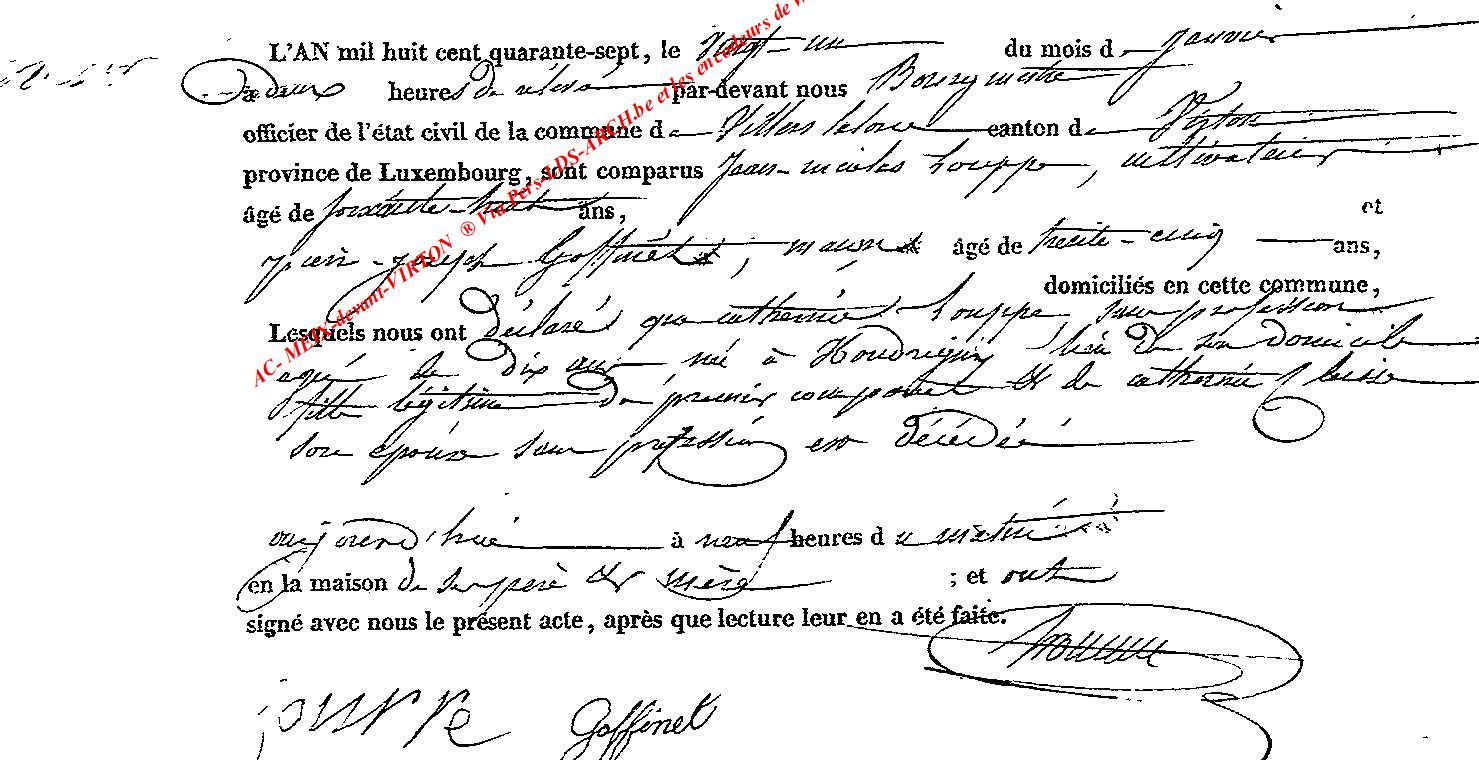 L'AN mil huit cent quarante-sept, le vingt-un du mois de janvier
à deux heures de relevé par-devant nous Bourgmestre
officier de l'état civil de la commune de Villers laloue canton de Virton
province de Luxembourg, sont comparus Jean-nicolas houppe, cultivateur
âgé de soixante-huit ans, et
jean-joseph Goffinet, âgé de trente-cinq ans,
domiciliés en cette commune,
Lesquels nous ont déclaré que catherine houppe, sans profession
agée de dix ans née à Houdrigny lieu de son domicile
fille légitime du premier comparant et de catherine
son épouse sans profession est décédée
aujourd'hui à neuf heures du matin
en la maison de ses père et mère ; et ont
signé avec nous le présent acte, après que lecture leur en a été faite.
Goffinet
AC- METX-devant-VIRTON ® Via Pers-LDS-ARCH.be et les encodeurs de